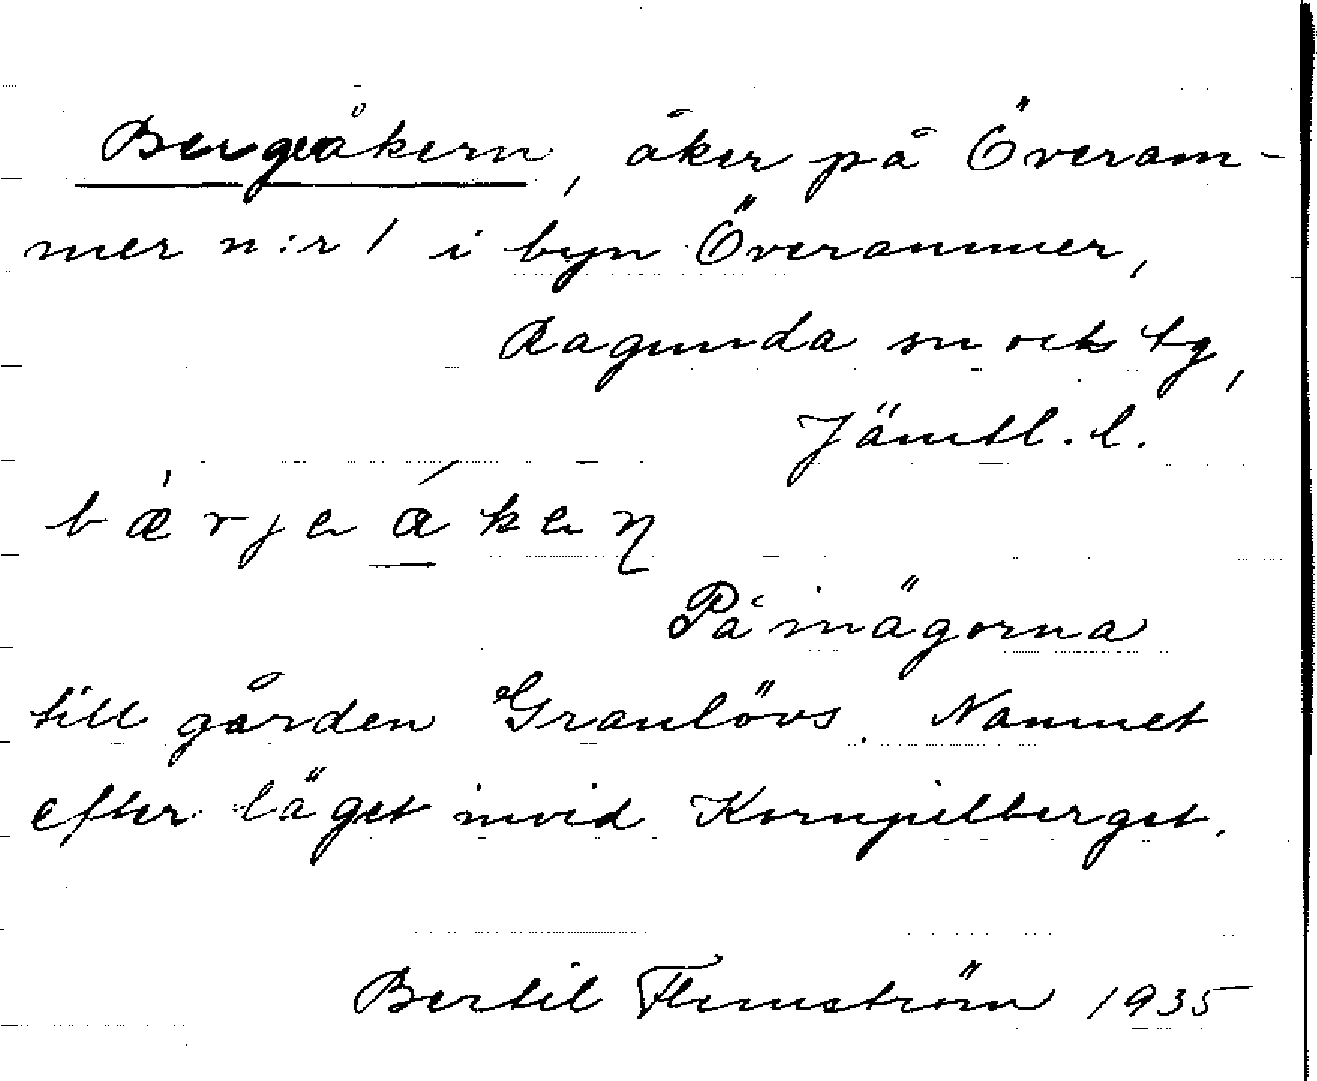 Bergeåkern, åker på Överam-
mer n:r 1 i byn Överammer,
Ragunda sn och tg,
Jämtl. l.
bǽrjeákeɳ
På inägorna
till gården Granlövs. Namnet
efter läget invid Kornpilberget.
Bertil Flemström 1935